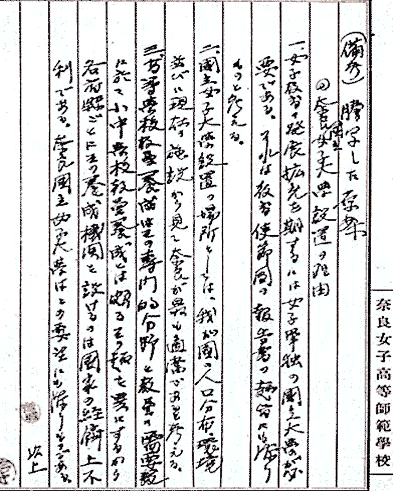 (備考) 謄写した原案
◎奈良国立女子大學設置の理由
一、女子教育の発展拡充を期するには女子単独の國立大學が必
要である。それは教育使節團の報告書の趣旨にも添う
ものと考える。
二、國立女子大學設置の場所としては、我が國の人口分布、環境
並びに現存の施設から見て奈良が最も適當であると考える。
三、高等學校教員養成はその専門的分野と教員の需要数
に於て小中學校教員養成とは頗るその趣を異にするから
各府縣ごとにその養成機関を設けるのは國家の経済上不
利である。奈良國立女子大學はこの要求にも添うものである。
以上
奈良女子高等師範學校